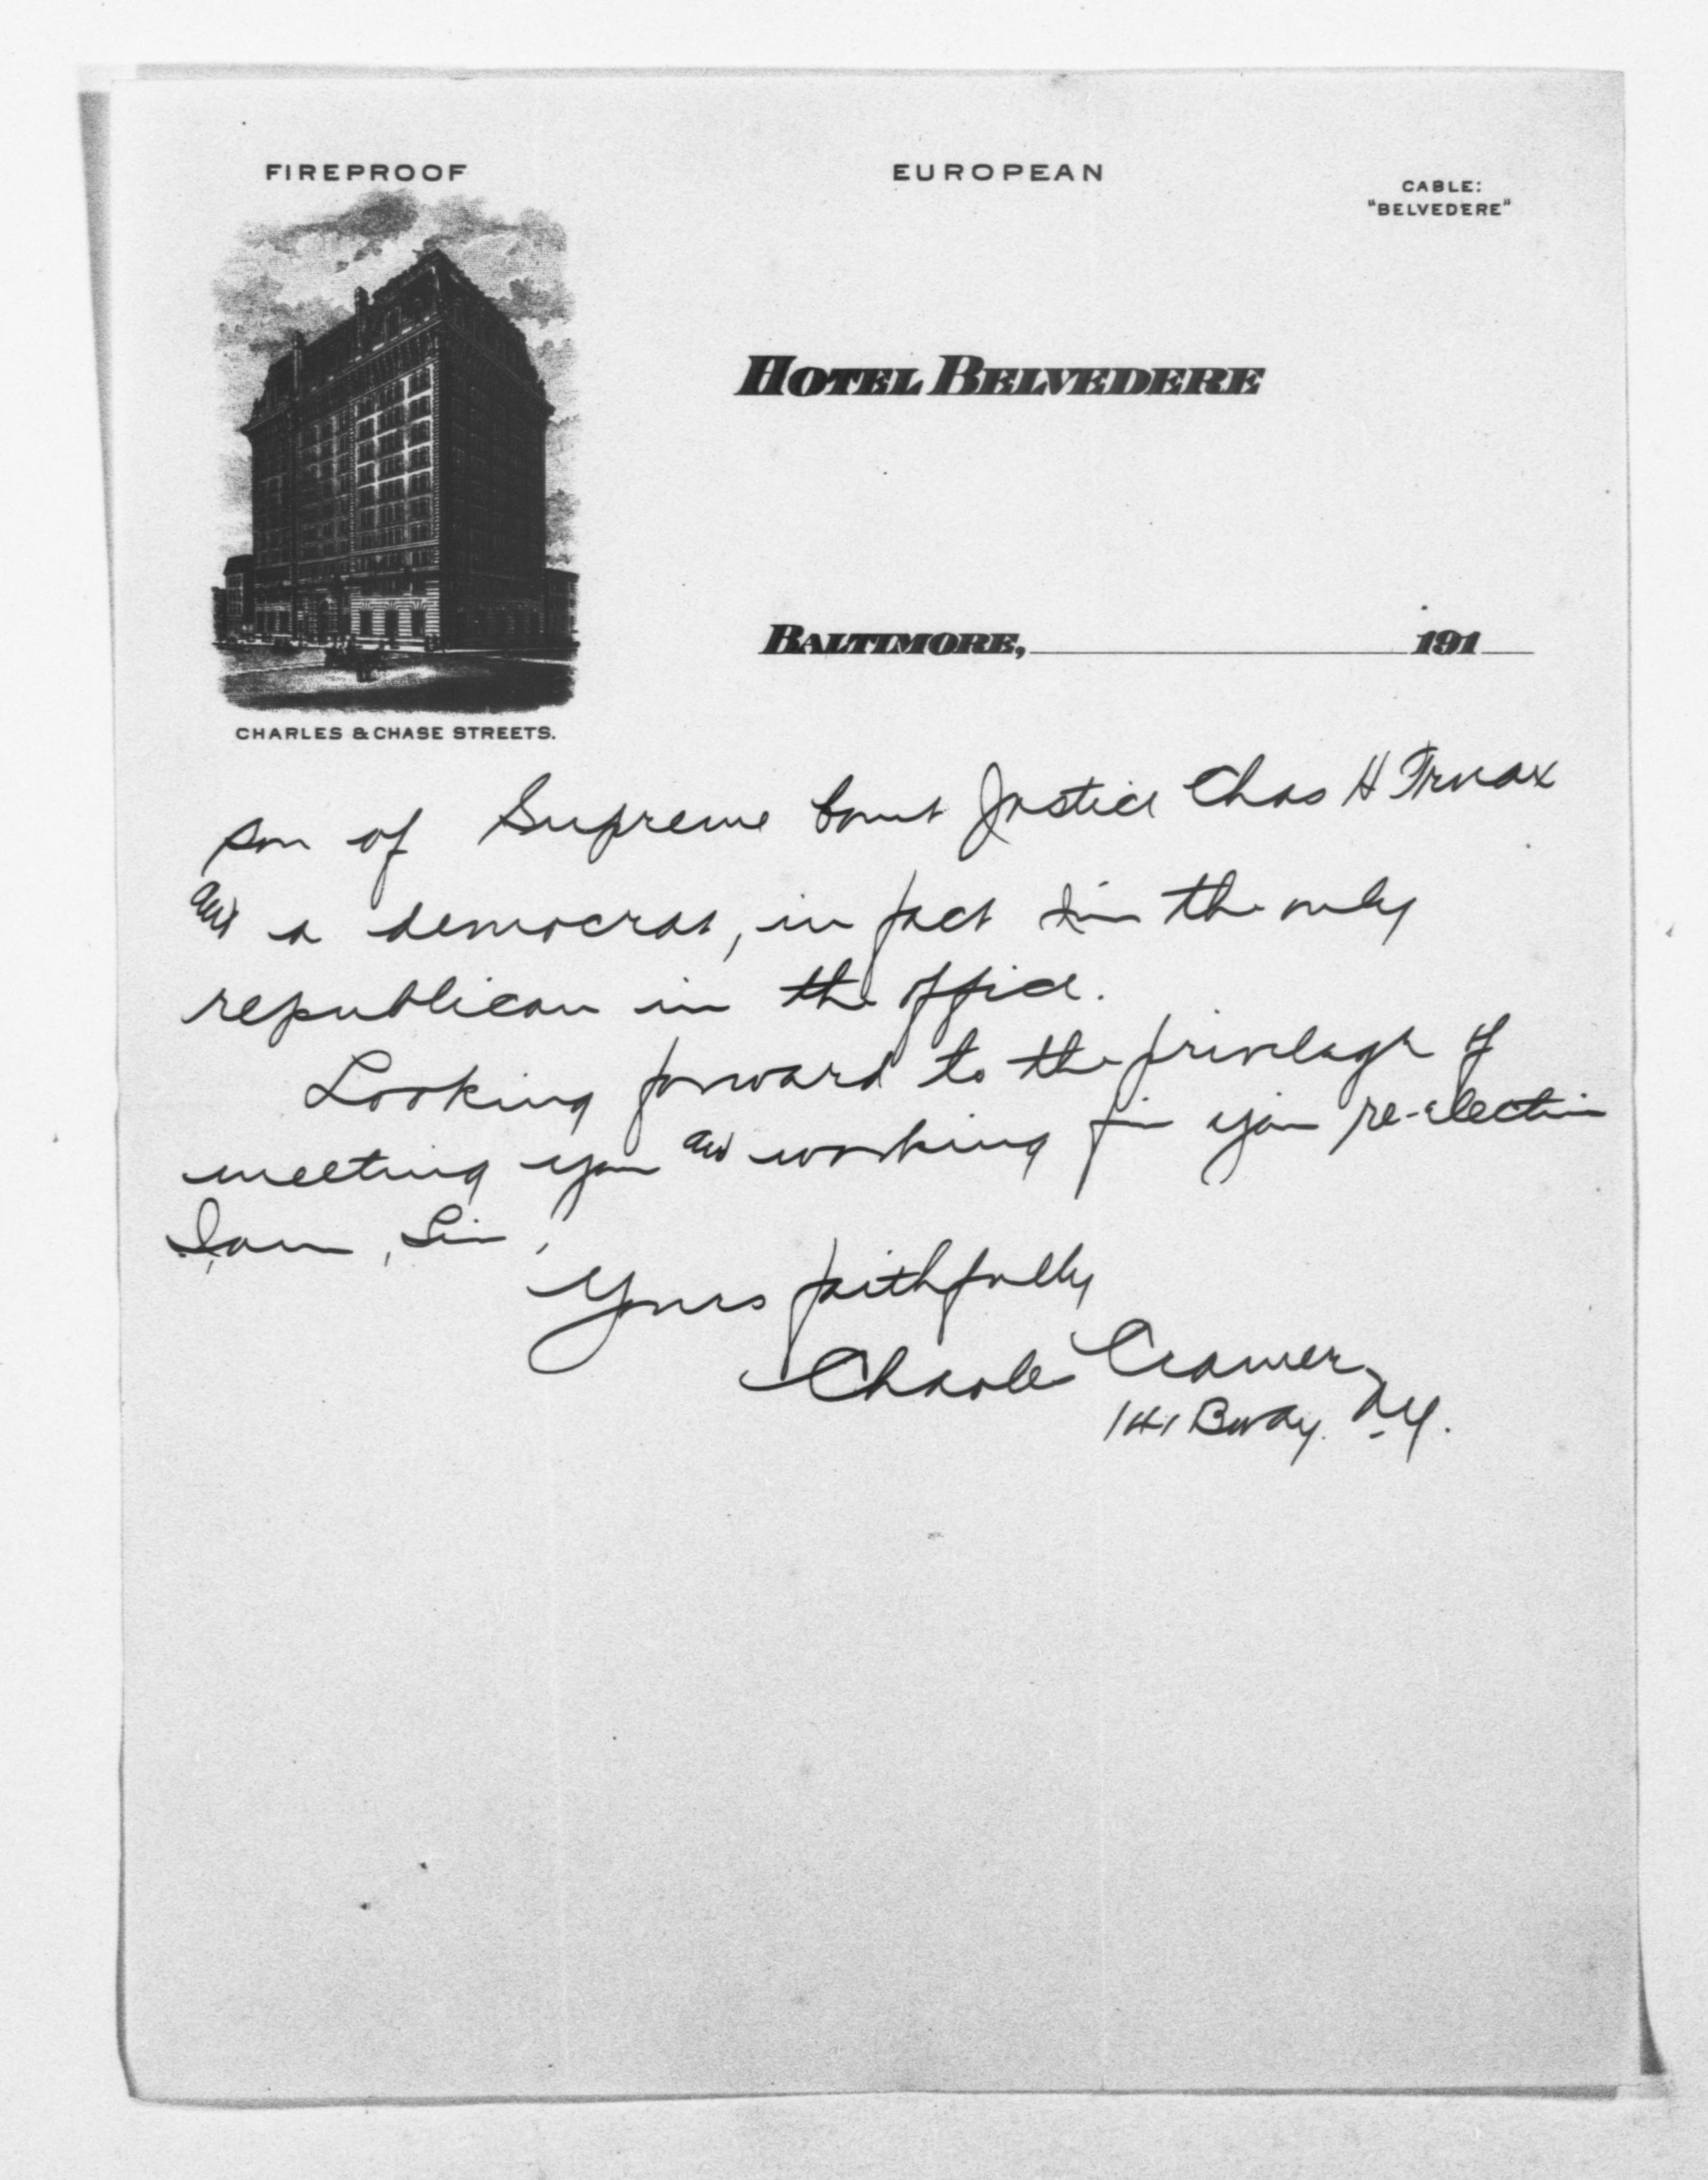 FIREPROOF
EUROPEAN
CABLE:
"BELVEDERE"
HOTEL BELVEDERE
BALTIMORE, 191
CHARLES & CHASE STREETS.
son of Supreme Court Justice Chas H Truax
and a democrat, in fact I'm the only
republican in the office.
Looking forward to the privelage of
meeting you and working for your re-election
I am, Sir,
Yours faithfully
Charles Cramer
141 Bway. N.Y.